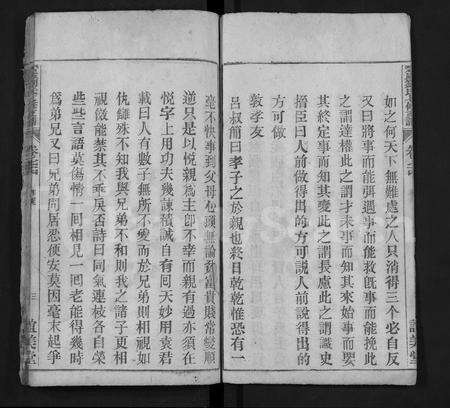 如之何天下無難處之人只消得三个必自反
又曰將事而能弭遇事而能救旣事而能挽此
之謂達權此之謂才未事而知其來始事而要
其終定事而知其變此之謂長慮此之謂識史
搢臣曰人前做得出的方可說人前說得出的
方可做
敦孝友
呂叔簡曰孝子之於親也終日乾乾惟恐有一
毫不快事到父母心頭無論貧富貴賤常變順
逆只是以悅親爲主卽不幸而親有過亦須在
悅字上用功夫幾諫積誠自有回天妙用袁君
載曰人有數子無所不愛而於兄弟則相視如
仇讎殊不知我與兄弟不和則我之諸子更相
視傚能禁其不乖戾否詩曰同氣連枝各自榮
些些言語莫傷情一回相見一回老能得幾時
爲弟兄又曰兄弟同居忍便安莫因毫末起爭
卷之
三